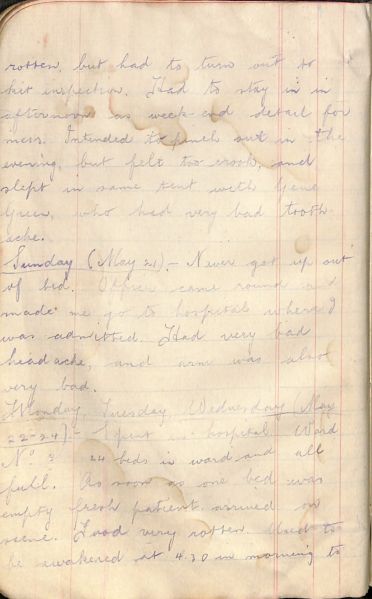 rotten, but had to turn out to
kit inspection. Had to stay in in
afternoon as week-end detail for
mess. Intended to punch out in the
evening, but felt too crook, and
slept in same tent with Gene
Green, who had very bad tooth
ache.
Sunday (May 21).- Never got up out
of bed. Officer came round and
made me go to hospital where I
was admitted. Had very bad
headache, and arm was also
very bad.
Monday, Tuesday, Wednesday (May
22-24).- Spent in hospital Ward
No 3 24 beds in ward and all
full. As soon as one bed was
empty fresh patient arrived on
scene. Food very rotten. Used to
be awakened at 4.30 in morning to